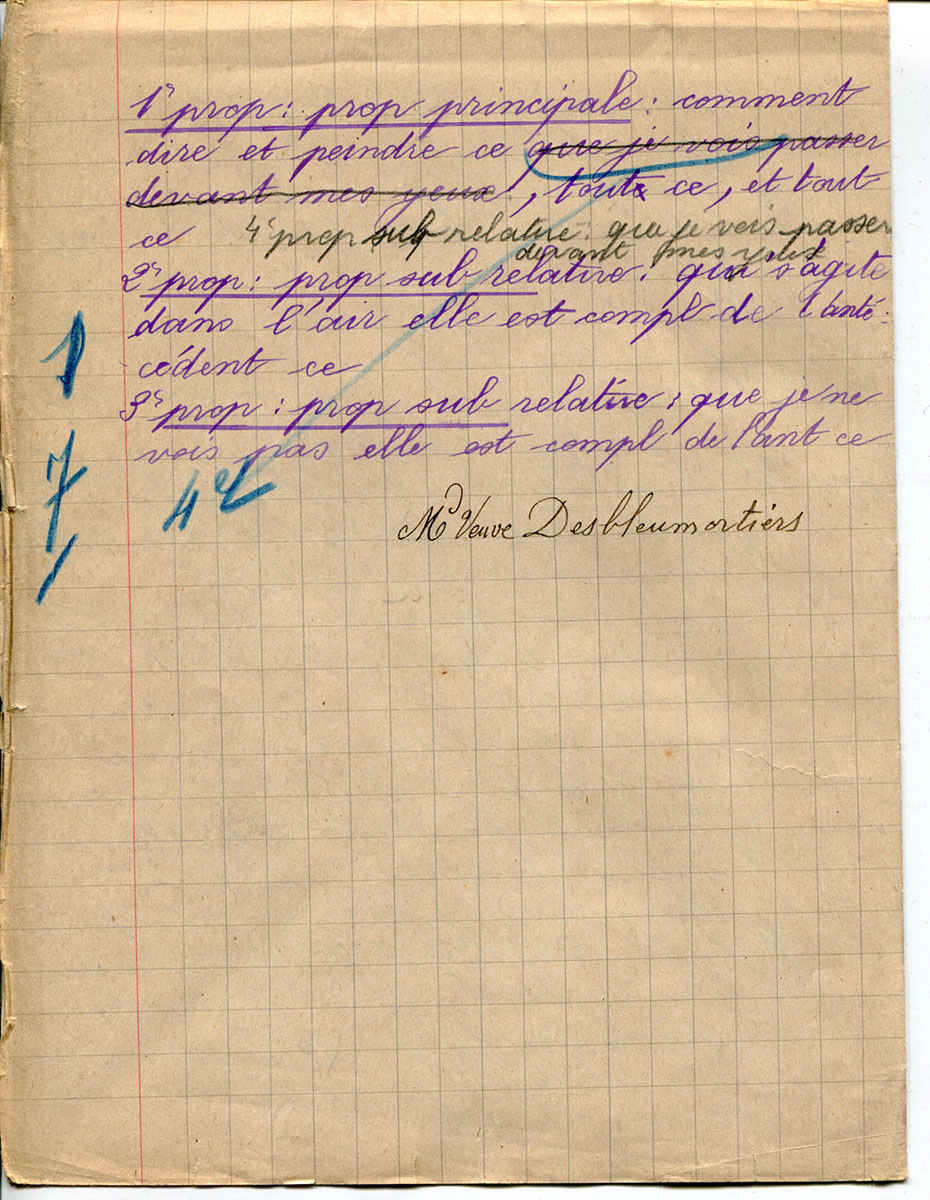 1e prop : prop principale : comment
dire et peindre ce que je vois passer
devant mes yeux !, tout ce, et tout
ce 4e prop sub relative : que je vois passer
devant mes yeux
2e prop : prop sub relative : qui s'agite
dans l'air elle est compl de l'anté-
cédent ce
3e prop : prop sub relative : que je ne
vois pas elle est compl de l'ant ce
7
4e
Md Veuve Desbleumortiers